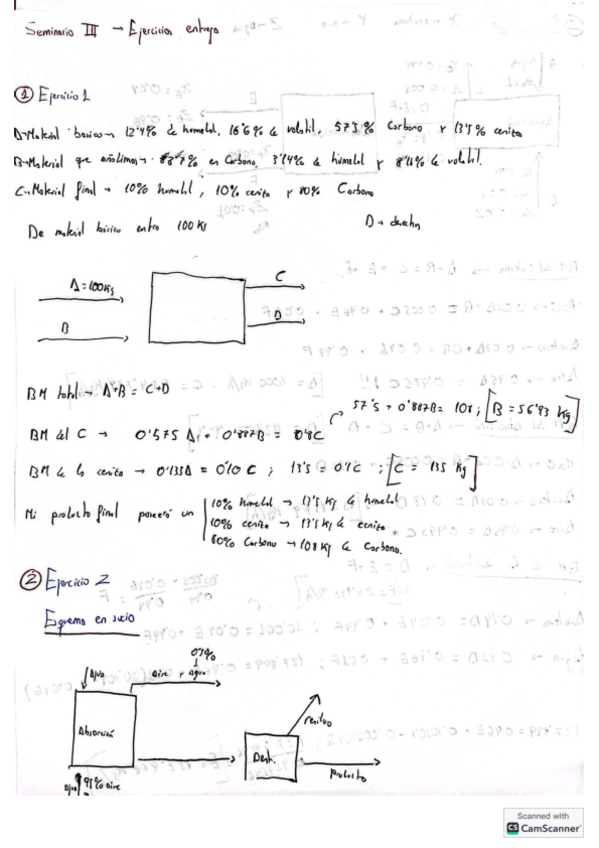 Seminario III → Ejercicios entrega
① Ejercicio 1
A→Material básico→ 12'4% de humedad, 16'6% de volatil, 57'5% Carbono y 13'5% ceniza
B→Material que añadimos→ 88'7% en Carbono, 3'14% de humedad y 8'11% de volatil.
C→Material final → 10% humedad, 10% ceniza y 80% Carbono
De material básico entra 100 Kg
D→ desechos
A = 100Kg
C
B
D
BM total → A+B = C+D
57'5 + 0'887B = 108 ; [B = 56'93 Kg]
BM del C → 0'575 A + 0'887B = 0'8C
BM de la ceniza → 0'135A = 0'10 C ; 13'5 = 0'1C ; [C = 135 Kg]
Mi producto final poseerá un
10% humedad → 13'5 Kg de humedad
10% ceniza → 13'5 Kg de ceniza
80% Carbono → 108 Kg de Carbono.
② Ejercicio 2
Esquema en sucio
Agua
Aire y Agua
Absorción
residuo
Dest.
producto
95% aire
Scanned with
CS CamScanner